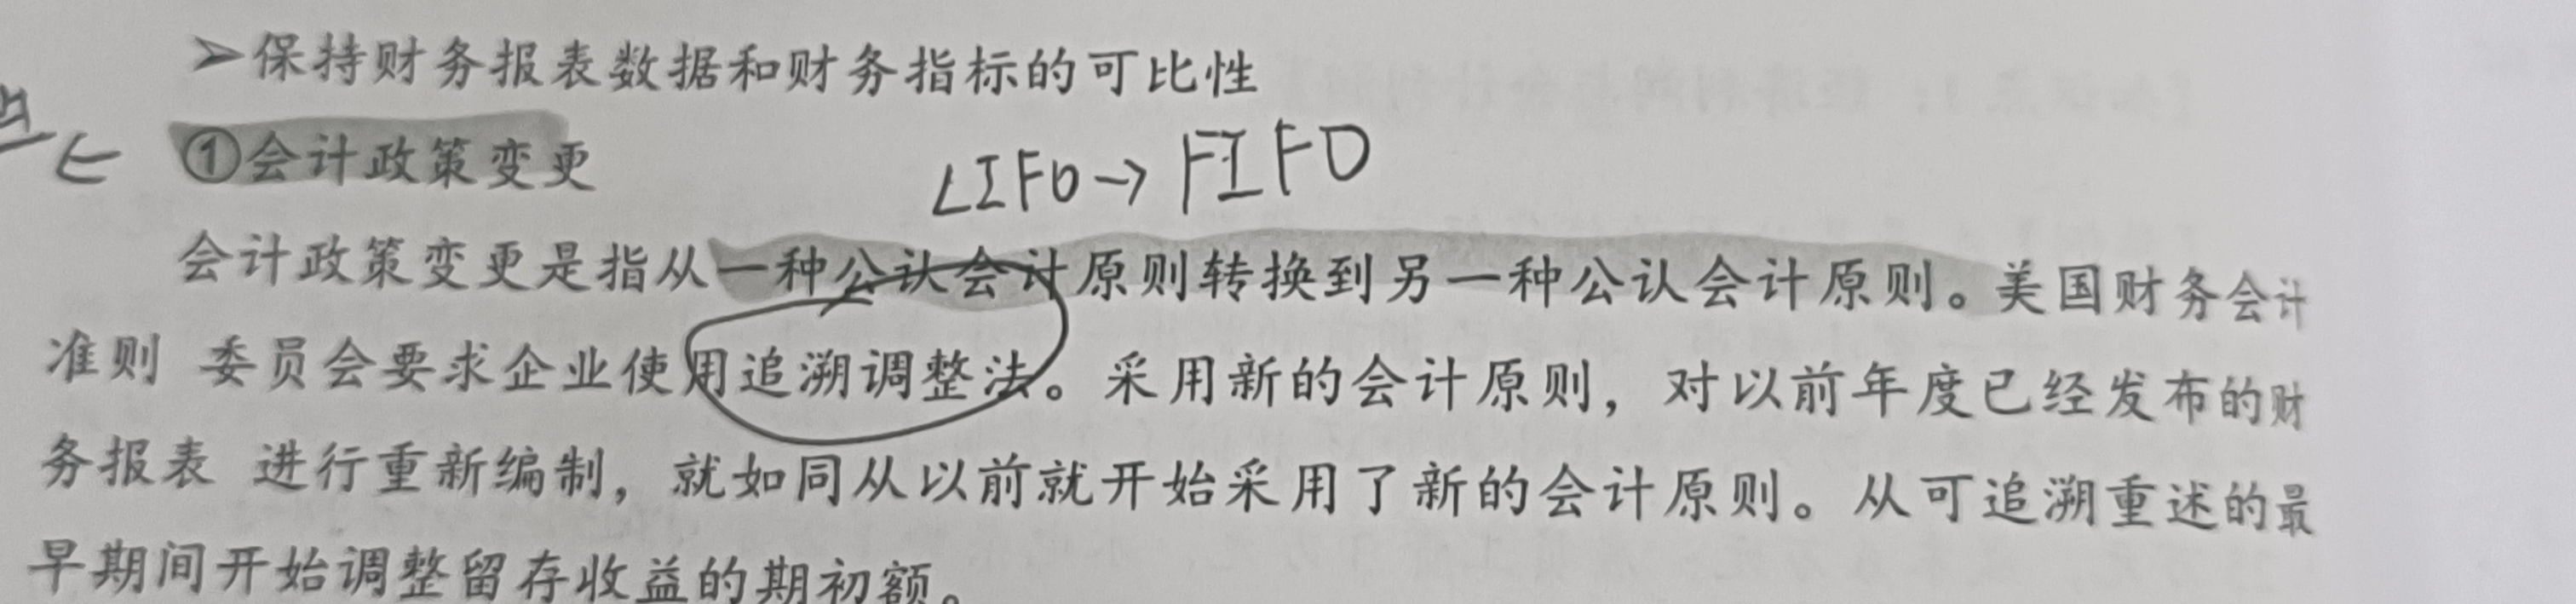 ➢保持财务报表数据和财务指标的可比性
①会计政策变更
LIFO→FIFO
会计政策变更是指从一种公认会计原则转换到另一种公认会计原则。美国财务会计
准则 委员会要求企业使用追溯调整法。采用新的会计原则，对以前年度已经发布的财
务报表 进行重新编制，就如同从以前就开始采用了新的会计原则。从可追溯重述的最
早期间开始调整留存收益的期初额。